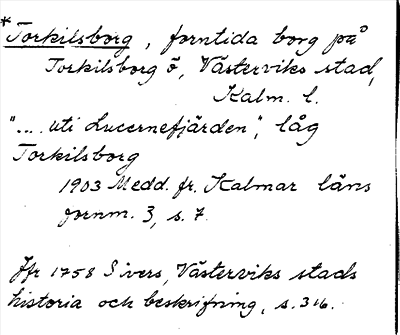 *Torkilsborg, forntida borg på
Torkilsborg ö, Västerviks stad,
Kalm. l.
"... uti Lucernefjärden", låg
Torkilsborg
1903 Medd. fr. Kalmar läns
fornm. 3, s. 7.
Jfr 1758 Sivers, Västerviks stads
historia och beskrifning, s. 316.